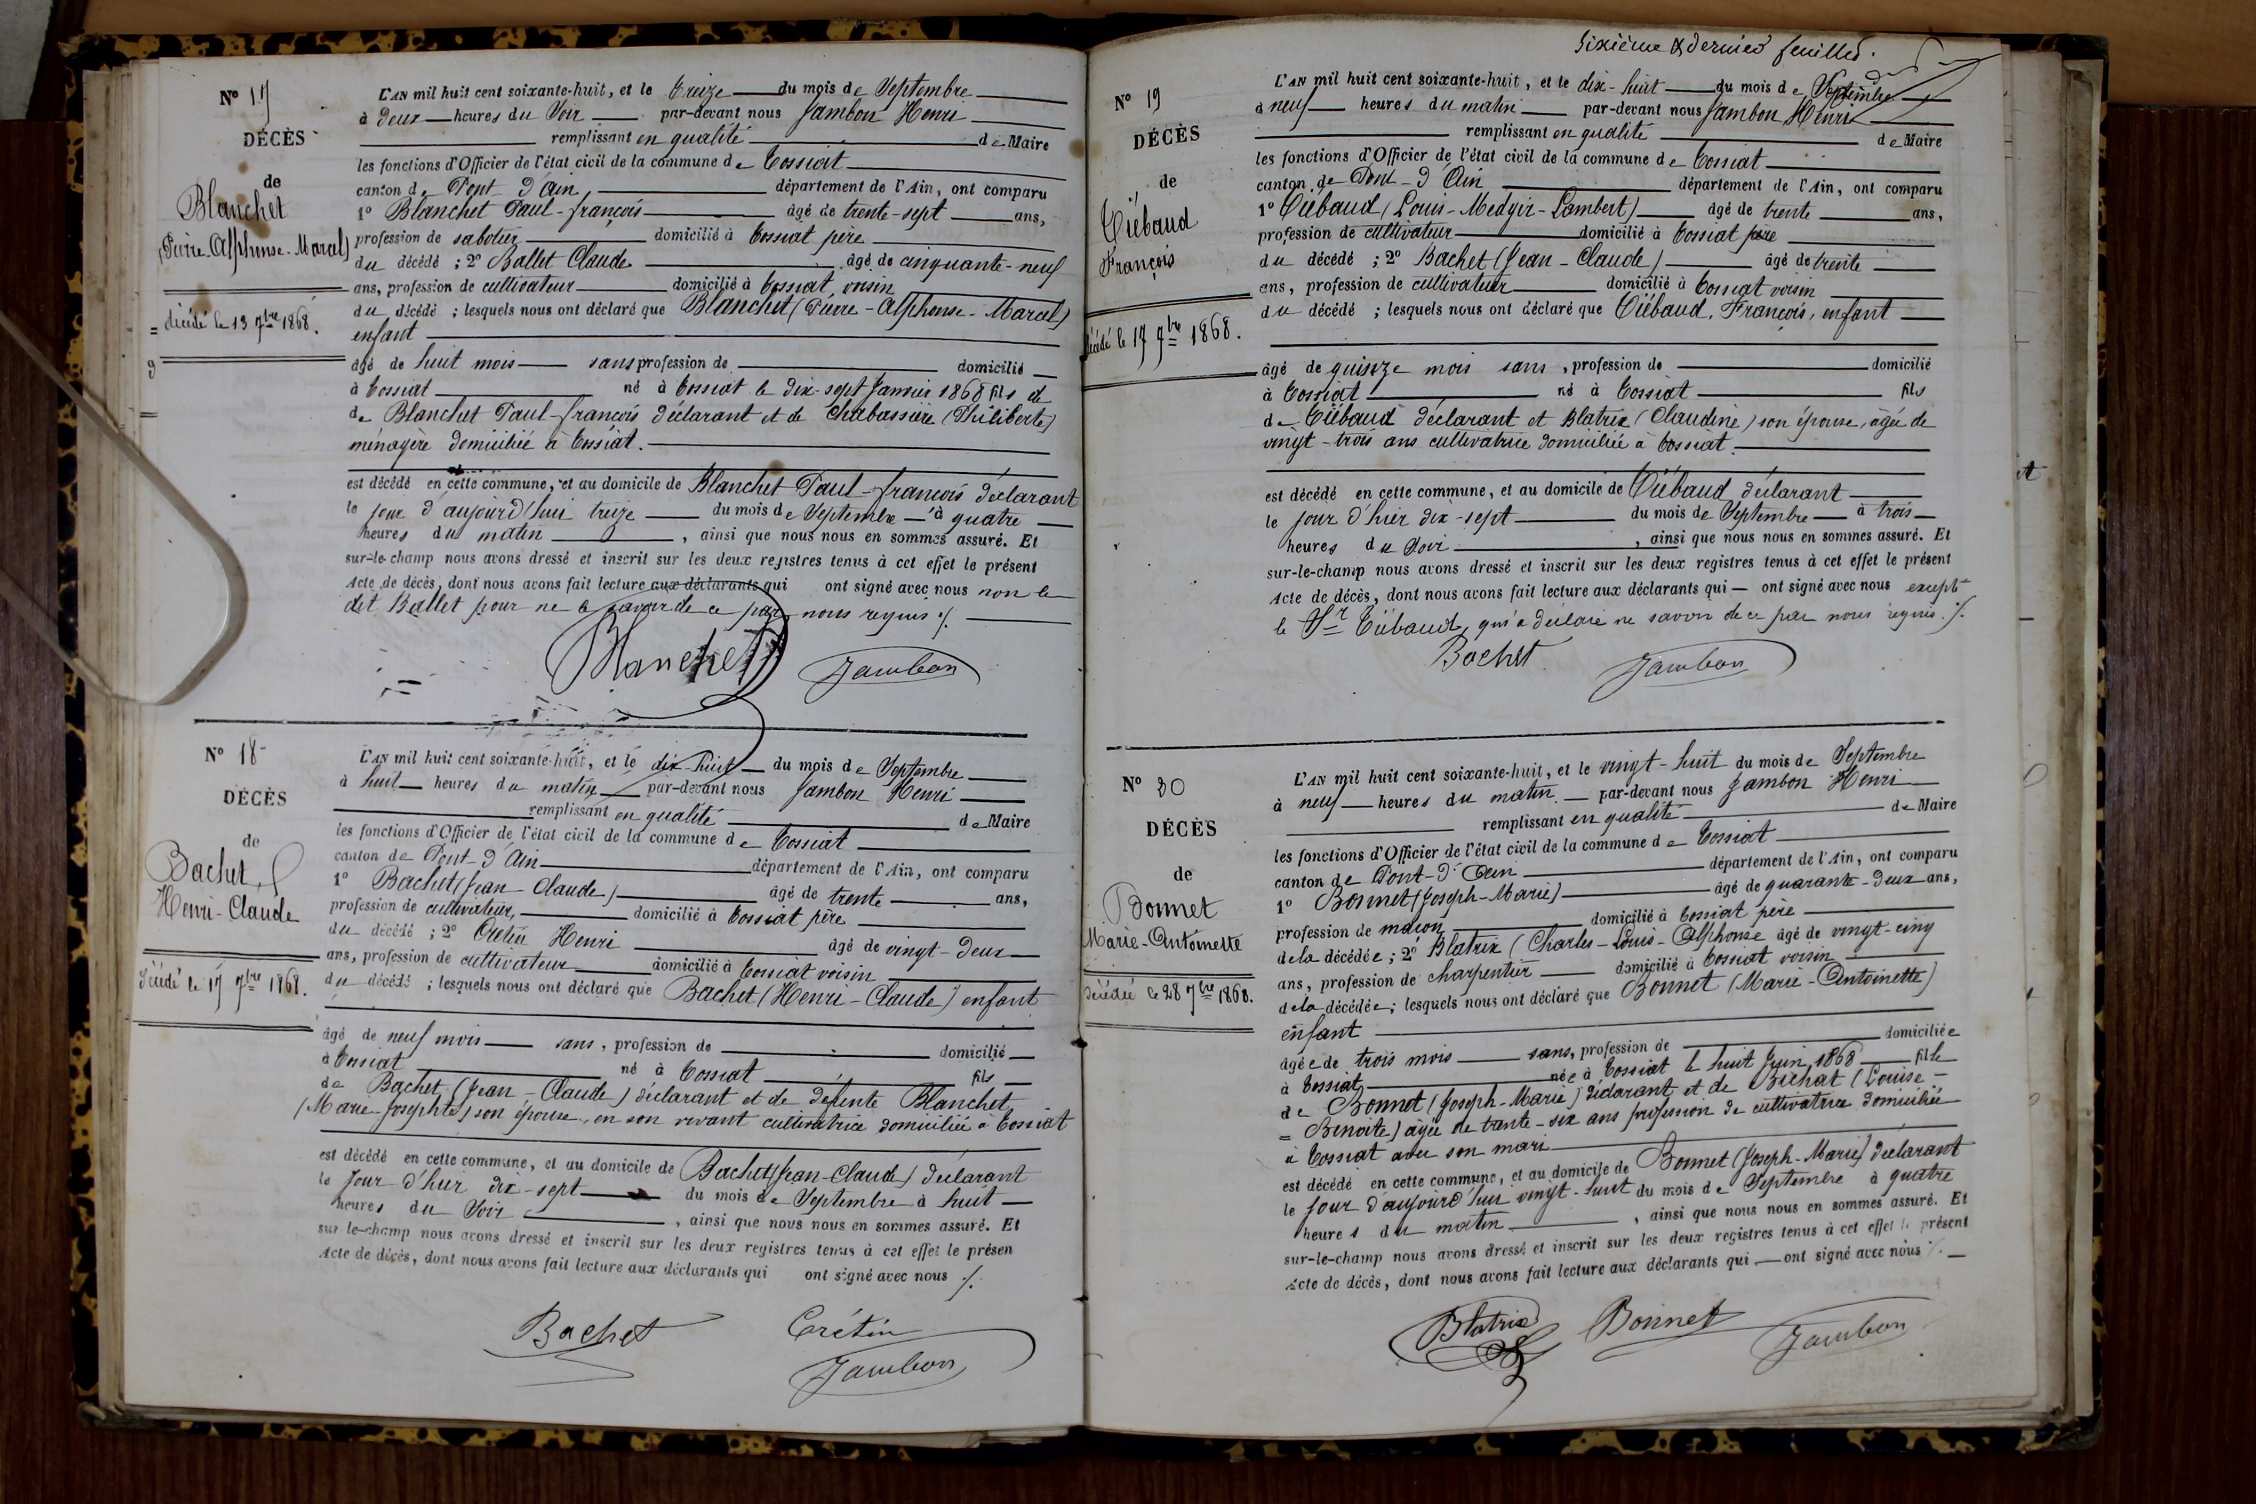 Nº 17
DÉCÈS
de
Blanchet
(Pierre-Alphonse-Marcel)
décédé le 13 7bre 1868.
L'AN mil huit cent soixante-huit, et le treize du mois de Septembre
à deux heures du soir par-devant nous Jambon Henri
remplissant en qualité de Maire
les fonctions d'Officier de l'état civil de la commune de Tossiat
canton de Pont-d'Ain département de l'Ain, ont comparu
1º Blanchet Paul-françois âgé de trente-sept ans,
profession de sabotier domicilié à Tossiat père
du décédé ; 2º Ballet Claude âgé de cinquante-neuf
ans, profession de cultivateur domicilié à Tossiat voisin
du décédé ; lesquels nous ont déclaré que Blanchet (Pierre-Alphonse-Marcel)
enfant
âgé de huit mois sans profession de domicilié
à Tossiat né à Tossiat le dix-sept Janvier 1868 fils de
de Blanchet Paul-françois déclarant et de Chabassière (Philiberte)
ménagère domiciliée à Tossiat.
est décédé en cette commune, et au domicile de Blanchet Paul-françois déclarant
le jour d'aujourd'hui treize du mois de Septembre à quatre
heures du matin, ainsi que nous nous en sommes assuré. Et
sur-le-champ nous avons dressé et inscrit sur les deux registres tenus à cet effet le présent
Acte de décès, dont nous avons fait lecture aux déclarants qui ont signé avec nous non le
dit Ballet pour ne le savoir de ce par nous requis ./.
Blanchet Jambon
Nº 18
DÉCÈS
de
Bachet
Henri-Claude
décédé le 17 7bre 1868.
L'AN mil huit cent soixante-huit, et le dix-huit du mois de Septembre
à huit heures du matin par-devant nous Jambon Henri
remplissant en qualité de Maire
les fonctions d'Officier de l'état civil de la commune de Tossiat
canton de Pont-d'Ain département de l'Ain, ont comparu
1º Bachet (Jean-Claude) âgé de trente ans,
profession de cultivateur, domicilié à Tossiat père
du décédé ; 2º Crétin Henri âgé de vingt-deux
ans, profession de cultivateur domicilié à Tossiat voisin
du décédé ; lesquels nous ont déclaré que Bachet (Henri-Claude) enfant
âgé de neuf mois sans, profession de domicilié
à Tossiat né à Tossiat fils
de Bachet (Jean-Claude) déclarant et de défunte Blanchet
(Marie-Josephte) son épouse, en son vivant cultivatrice domiciliée à Tossiat
est décédé en cette commune, et au domicile de Bachet (Jean-Claude) déclarant
le jour d'hier dix-sept du mois de Septembre à huit
heures du soir, ainsi que nous nous en sommes assuré. Et
sur-le-champ nous avons dressé et inscrit sur les deux registres tenus à cet effet le présen
Acte de décès, dont nous avons fait lecture aux déclarants qui ont signé avec nous ./.
Bachet Crétin
Jambon
Sixième & dernier feuillet.
Nº 19
DÉCÈS
de
Tiébaud
François
décédé le 17 7bre 1868.
L'AN mil huit cent soixante-huit, et le dix-huit du mois de Septembre
à neuf heures du matin par-devant nous Jambon Henri
remplissant en qualité de Maire
les fonctions d'Officier de l'état civil de la commune de Tossiat
canton de Pont-d'Ain département de l'Ain, ont comparu
1º Tiébaud (Louis-Medgir-Lambert) âgé de trente ans,
profession de cultivateur domicilié à Tossiat père
du décédé ; 2º Bachet (Jean-Claude) âgé de trente
ans, profession de cultivateur domicilié à Tossiat voisin
du décédé ; lesquels nous ont déclaré que Tiébaud, François, enfant
âgé de quinze mois sans, profession de domicilié
à Tossiat né à Tossiat fils
de Tiébaud déclarant et Blatrix (Claudine) son épouse, âgée de
vingt-trois ans cultivatrice domiciliée à Tossiat.
est décédé en cette commune, et au domicile de Tiébaud déclarant
le jour d'hier dix-sept du mois de Septembre à trois
heures du soir, ainsi que nous nous en sommes assuré. Et
sur-le-champ nous avons dressé et inscrit sur les deux registres tenus à cet effet le présent
Acte de décès, dont nous avons fait lecture aux déclarants qui ont signé avec nous excepté
le Sr Tiébaud, qui a déclaré ne savoir de ce par nous requis ./.
Bachet Jambon
Nº 20
DÉCÈS
de
Bonnet
Marie-Antoinette
décédée le 28 7bre 1868.
L'AN mil huit cent soixante-huit, et le vingt-huit du mois de Septembre
à neuf heures du matin par-devant nous Jambon Henri
remplissant en qualité de Maire
les fonctions d'Officier de l'état civil de la commune de Tossiat
canton de Pont-d'Ain département de l'Ain, ont comparu
1º Bonnet (Joseph-Marie) âgé de quarante-deux ans,
profession de maçon domicilié à Tossiat père
de la décédée ; 2º Blatrix (Charles-Louis-Alphonse âgé de vingt-cinq
ans, profession de charpentier domicilié à Tossiat voisin
de la décédée ; lesquels nous ont déclaré que Bonnet (Marie-Antoinette)
enfant
âgée de trois mois sans, profession de domiciliée
à Tossiat née à Tossiat le huit Juin 1868 fille
de Bonnet (Joseph-Marie) déclarant et de Bichat (Louise-
= Benoite) âgée de trente-six ans profession de cultivatrice domiciliée
à Tossiat avec son mari
est décédé en cette commune, et au domicile de Bonnet (Joseph-Marie) déclarant
le jour d'aujourd'hui vingt-huit du mois de Septembre à quatre
heures du matin, ainsi que nous nous en sommes assuré. Et
sur-le-champ nous avons dressé et inscrit sur les deux registres tenus à cet effet le présent
Acte de décès, dont nous avons fait lecture aux déclarants qui ont signé avec nous ./.
Blatrix Bonnet Jambon